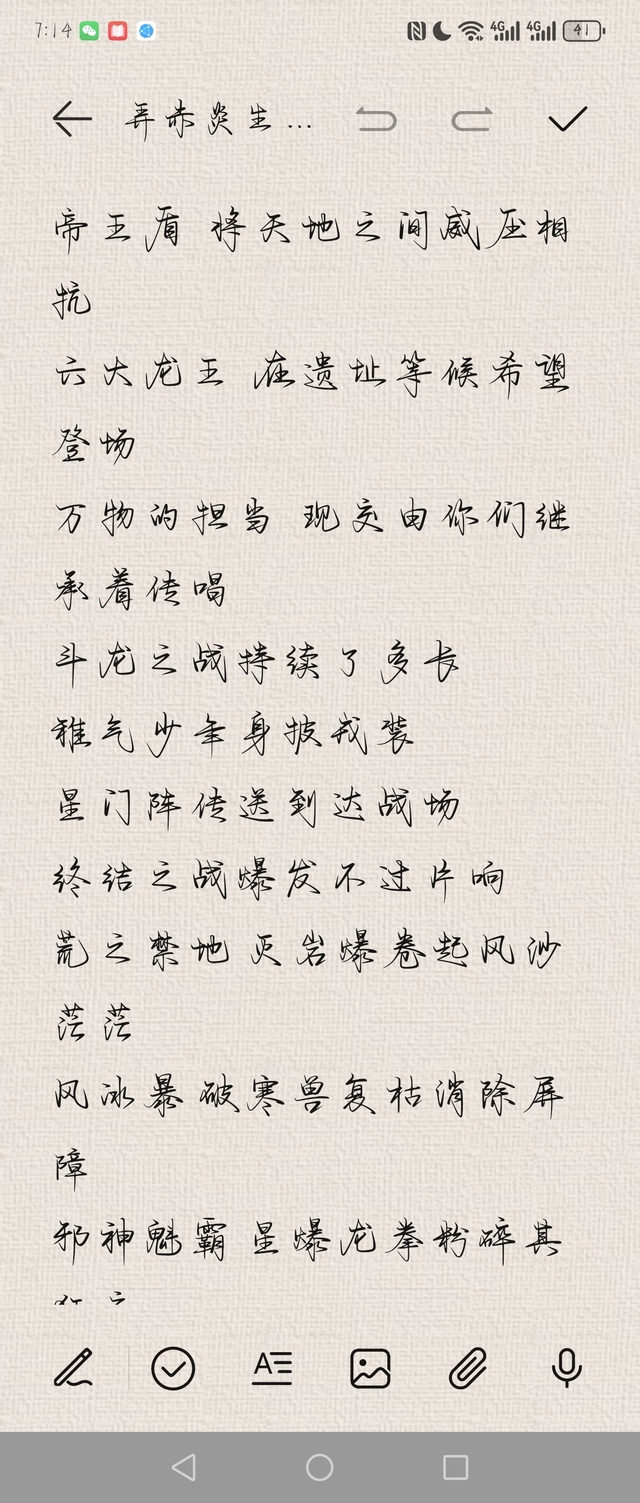 7:14
4G 4G 41
弄赤炎生...
帝王盾 将天地之间威压相
抗
六大龙王 在遗址等候希望
登场
万物的担当 现交由你们继
承着传唱
斗龙之战持续了多长
稚气少年身披戎装
星门阵传送到达战场
终结之战爆发不过片响
荒之禁地 灭岩爆卷起风沙
茫茫
风冰暴 破寒兽复枯消除屏
障
邪神魁霸 星爆龙拳粉碎其